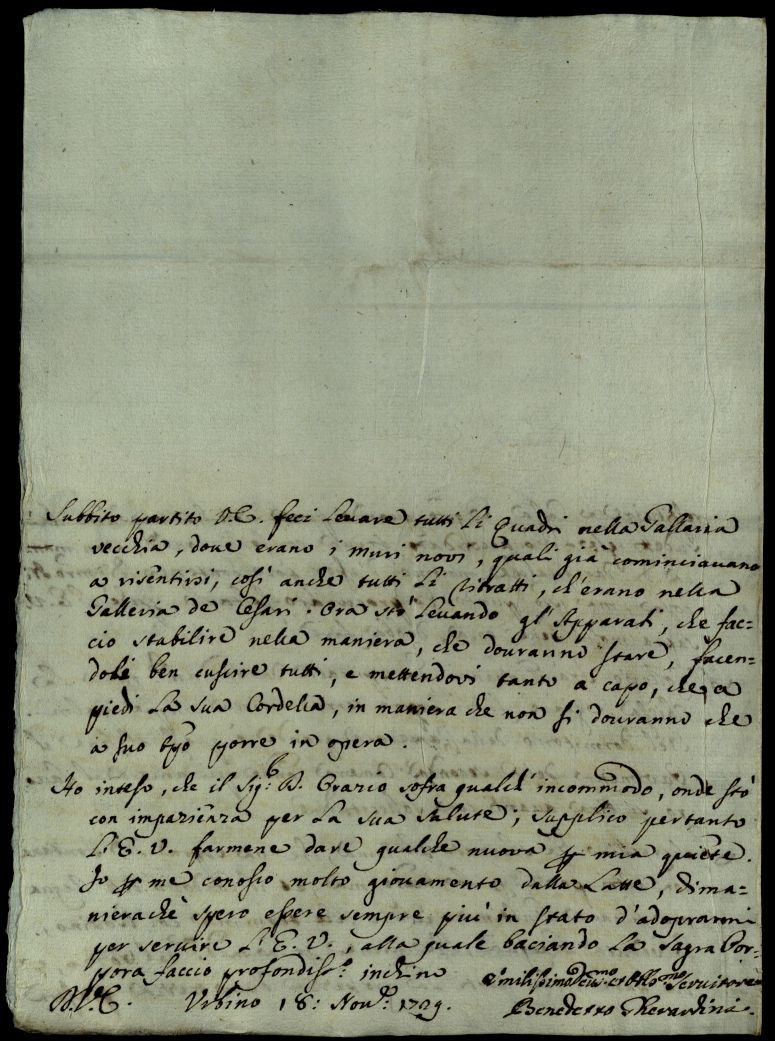 Subbito partito V.E. feci levare tutti li Quadri nella Gallaria
vecchia, dove erano i muri novi, quali già cominciavano
a risentirsi, così anche tutti li Ritratti, ch'erano nella
Galleria de Cesari. Ora stò levando gl'Apparati, che fac=
cio stabilire nella maniera, che dovranno stare, facen=
doli ben cuscire tutti, e mettendovi tanto a capo, che a
piedi la sua Cordella, in maniera che non si dovranno che
a suo tpō porre in opera.
Ho inteso, che il Sig.r D. Orazio sofra qualch'incommodo, onde stò
con impazienza per la sua salute; supplico pertanto
l'E.V. farmene dare qualche nuova p mia quiete.
Io p me conosco molto giovamento dalla Latte, dima=
nierachè spero essere sempre più in stato d'adoprarmi
per servire l'E.V., alla quale baciando la Sagra Por=
pora faccio profondiss.o inchino
Umilissimo Dev.mo et Obl.mo Servitore
D.V.E. Urbino 18: Nov.e 1729.
Benedetto Gherardini.